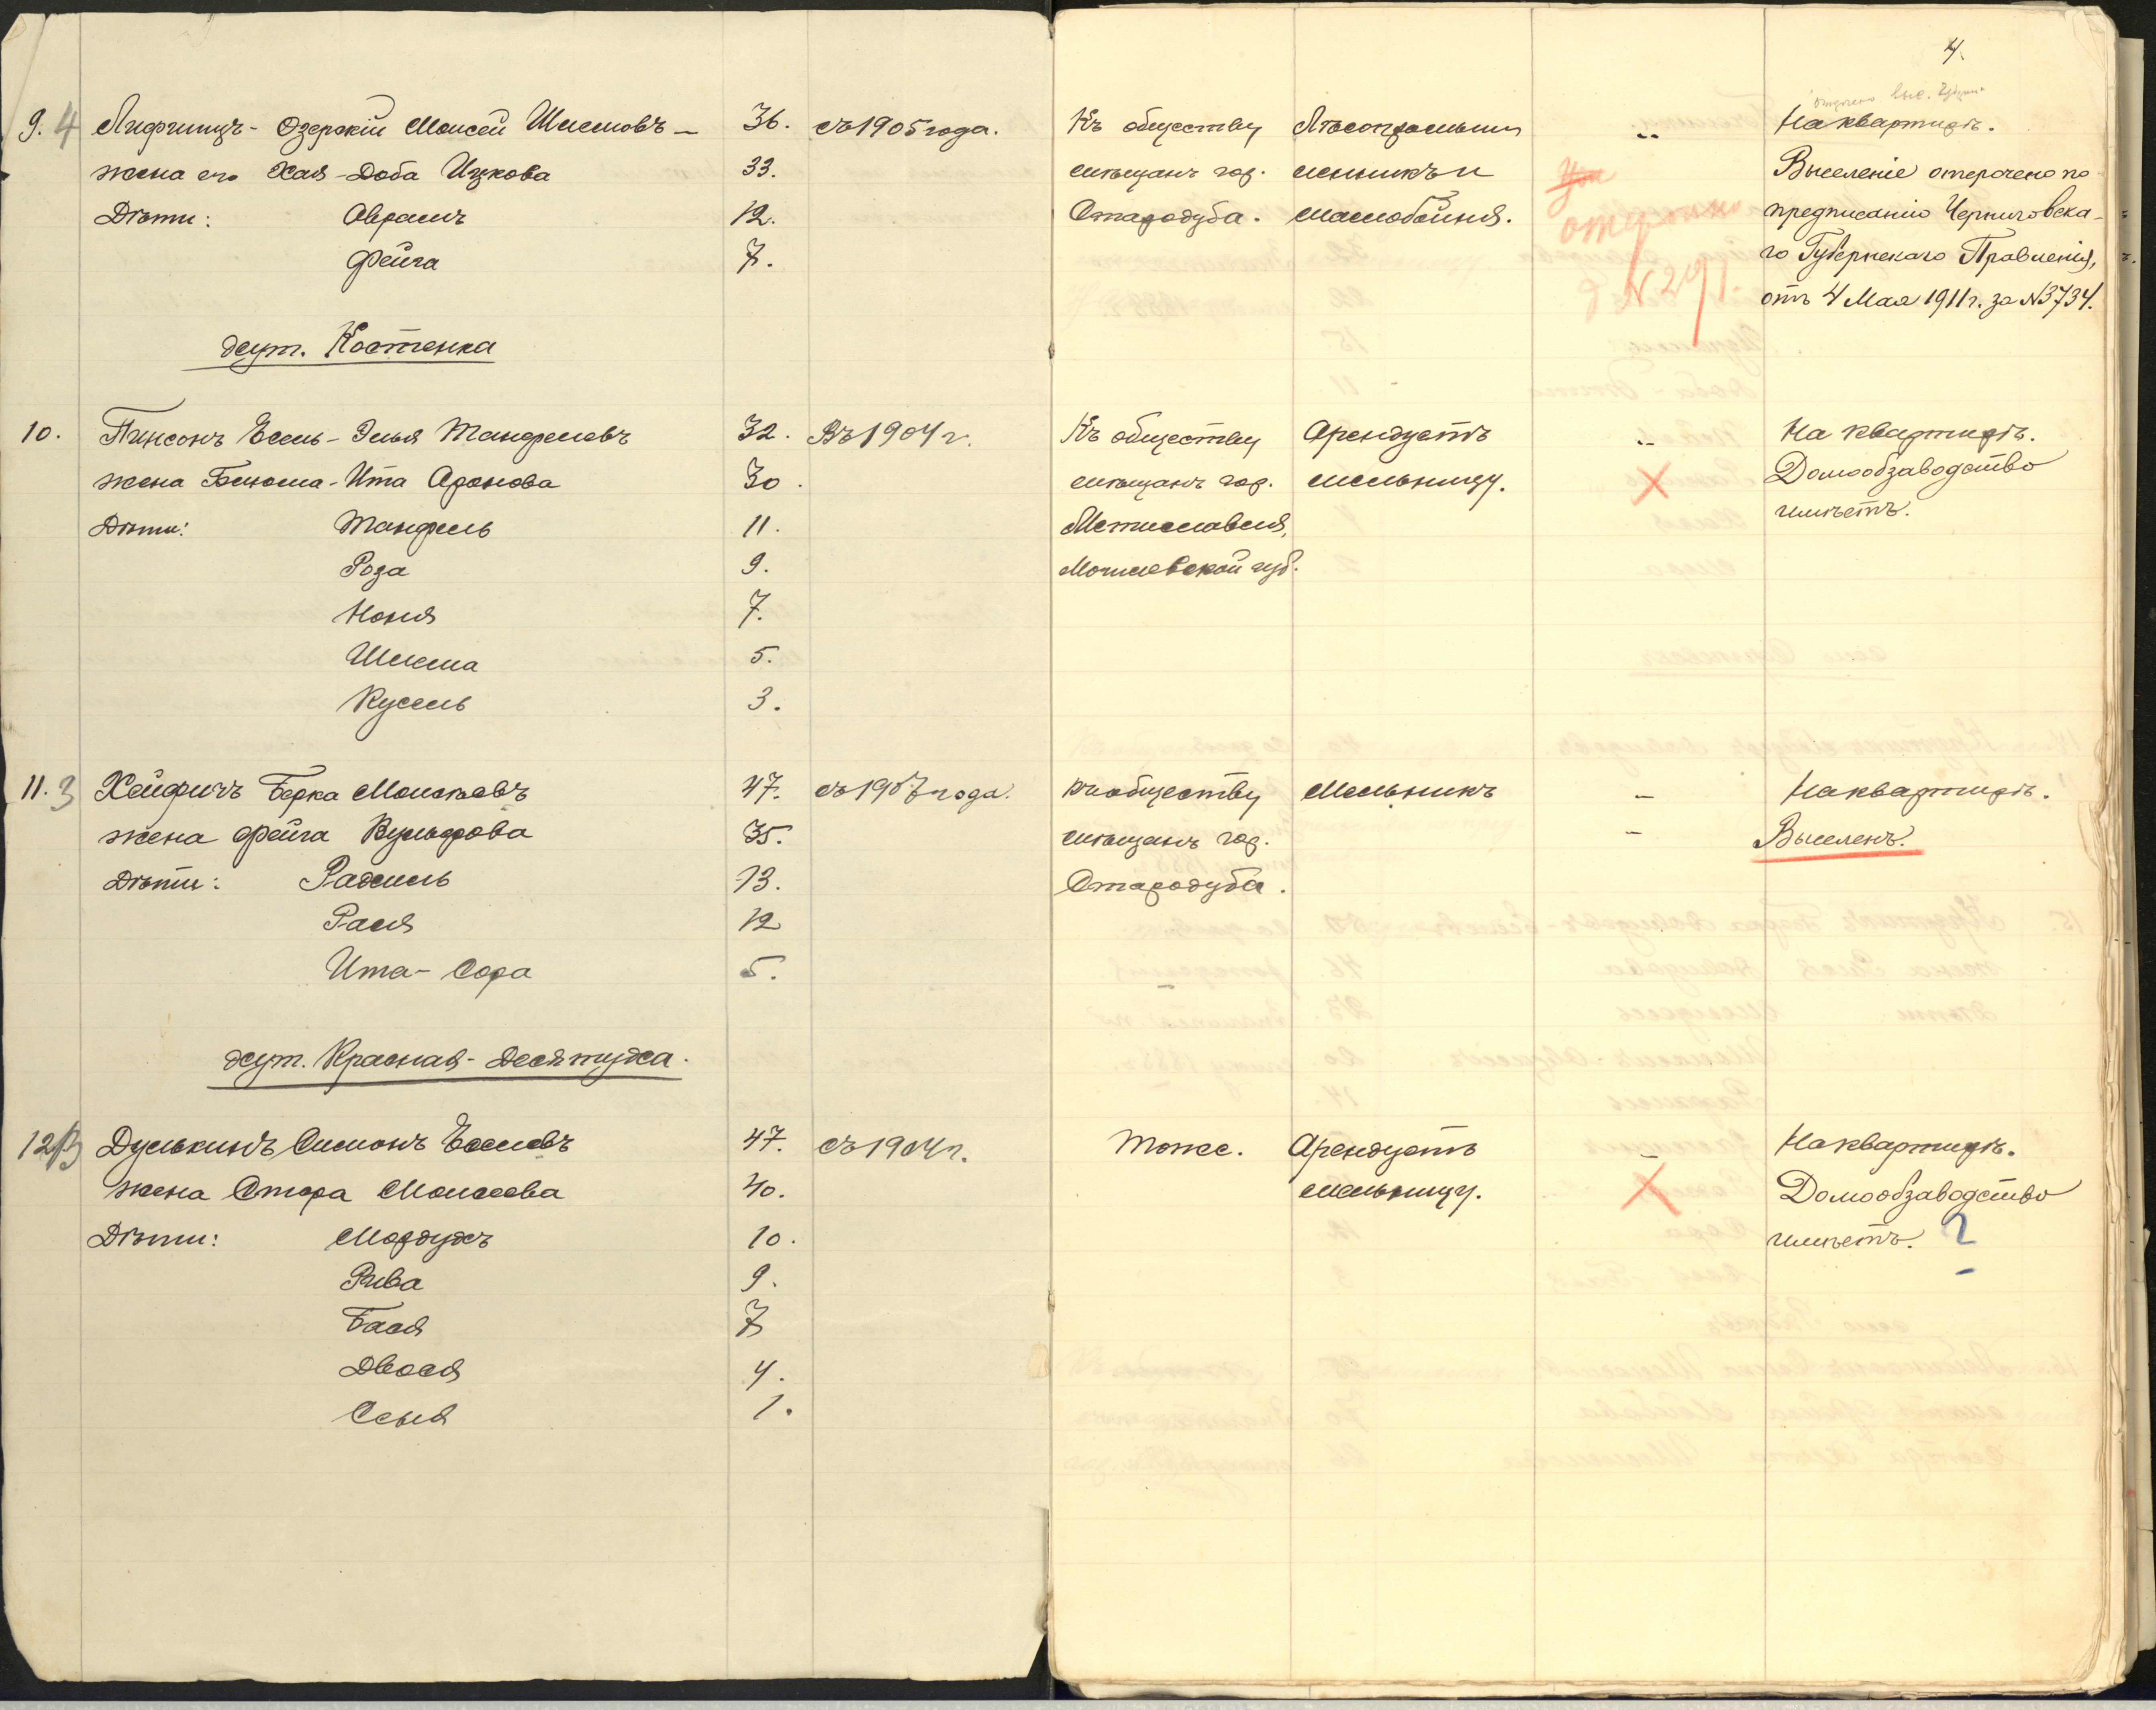 4.
9. 4 Лифшицъ - Озерскій Моисей Шлемовъ — 36. съ 1905 года. Къ обществу Лѣсопромыш - На квартирѣ.
жена его Хая - Доба Ицкова 33. мѣщанъ гор. ленникъ и Выселеніе отсрочено по
Дѣти: Абрамъ 12. Стародуба. маслобойня. отсрочено предписанію Черниговска-
Фейга 7. го Губернскаго Правленія,
№ 291. отъ 4 Мая 1911 г. за № 3734.
хут. Костенка
10. Пинсонъ Есель - Элья Манфелевъ 32. Въ 1904 г. Къ обществу Арендуетъ На квартирѣ.
жена Блюма - Ита Аронова 30. мѣщанъ гор. мельницу. Домообзаводство
Дѣти: Манфель 11. Мстиславля, имѣетъ.
Роза 9. Могилевской губ.
Ноня 7.
Шлема 5.
Кусель 3.
11. 3 Хейфичъ Берка Моисѣевъ 47. съ 1907 года. Къ обществу Мельникъ — На квартирѣ.
жена Фейга Вульфова 35. мѣщанъ гор. — Выселенъ.
Дѣти: Рахиль 13. Стародуба.
Рася 12
Ита - Сора 5.
хут. Красная - Десятуха.
12 Дулькинъ Симонъ Еселевъ 47. съ 1904 г. Тоже. Арендуетъ — На квартирѣ.
жена Стера Моисеева 40. мельницу. Домообзаводство
Дѣти: Мордухъ 10. имѣетъ. ?
Рива 9.
Бася 7
Двося 4.
Сеня 1.